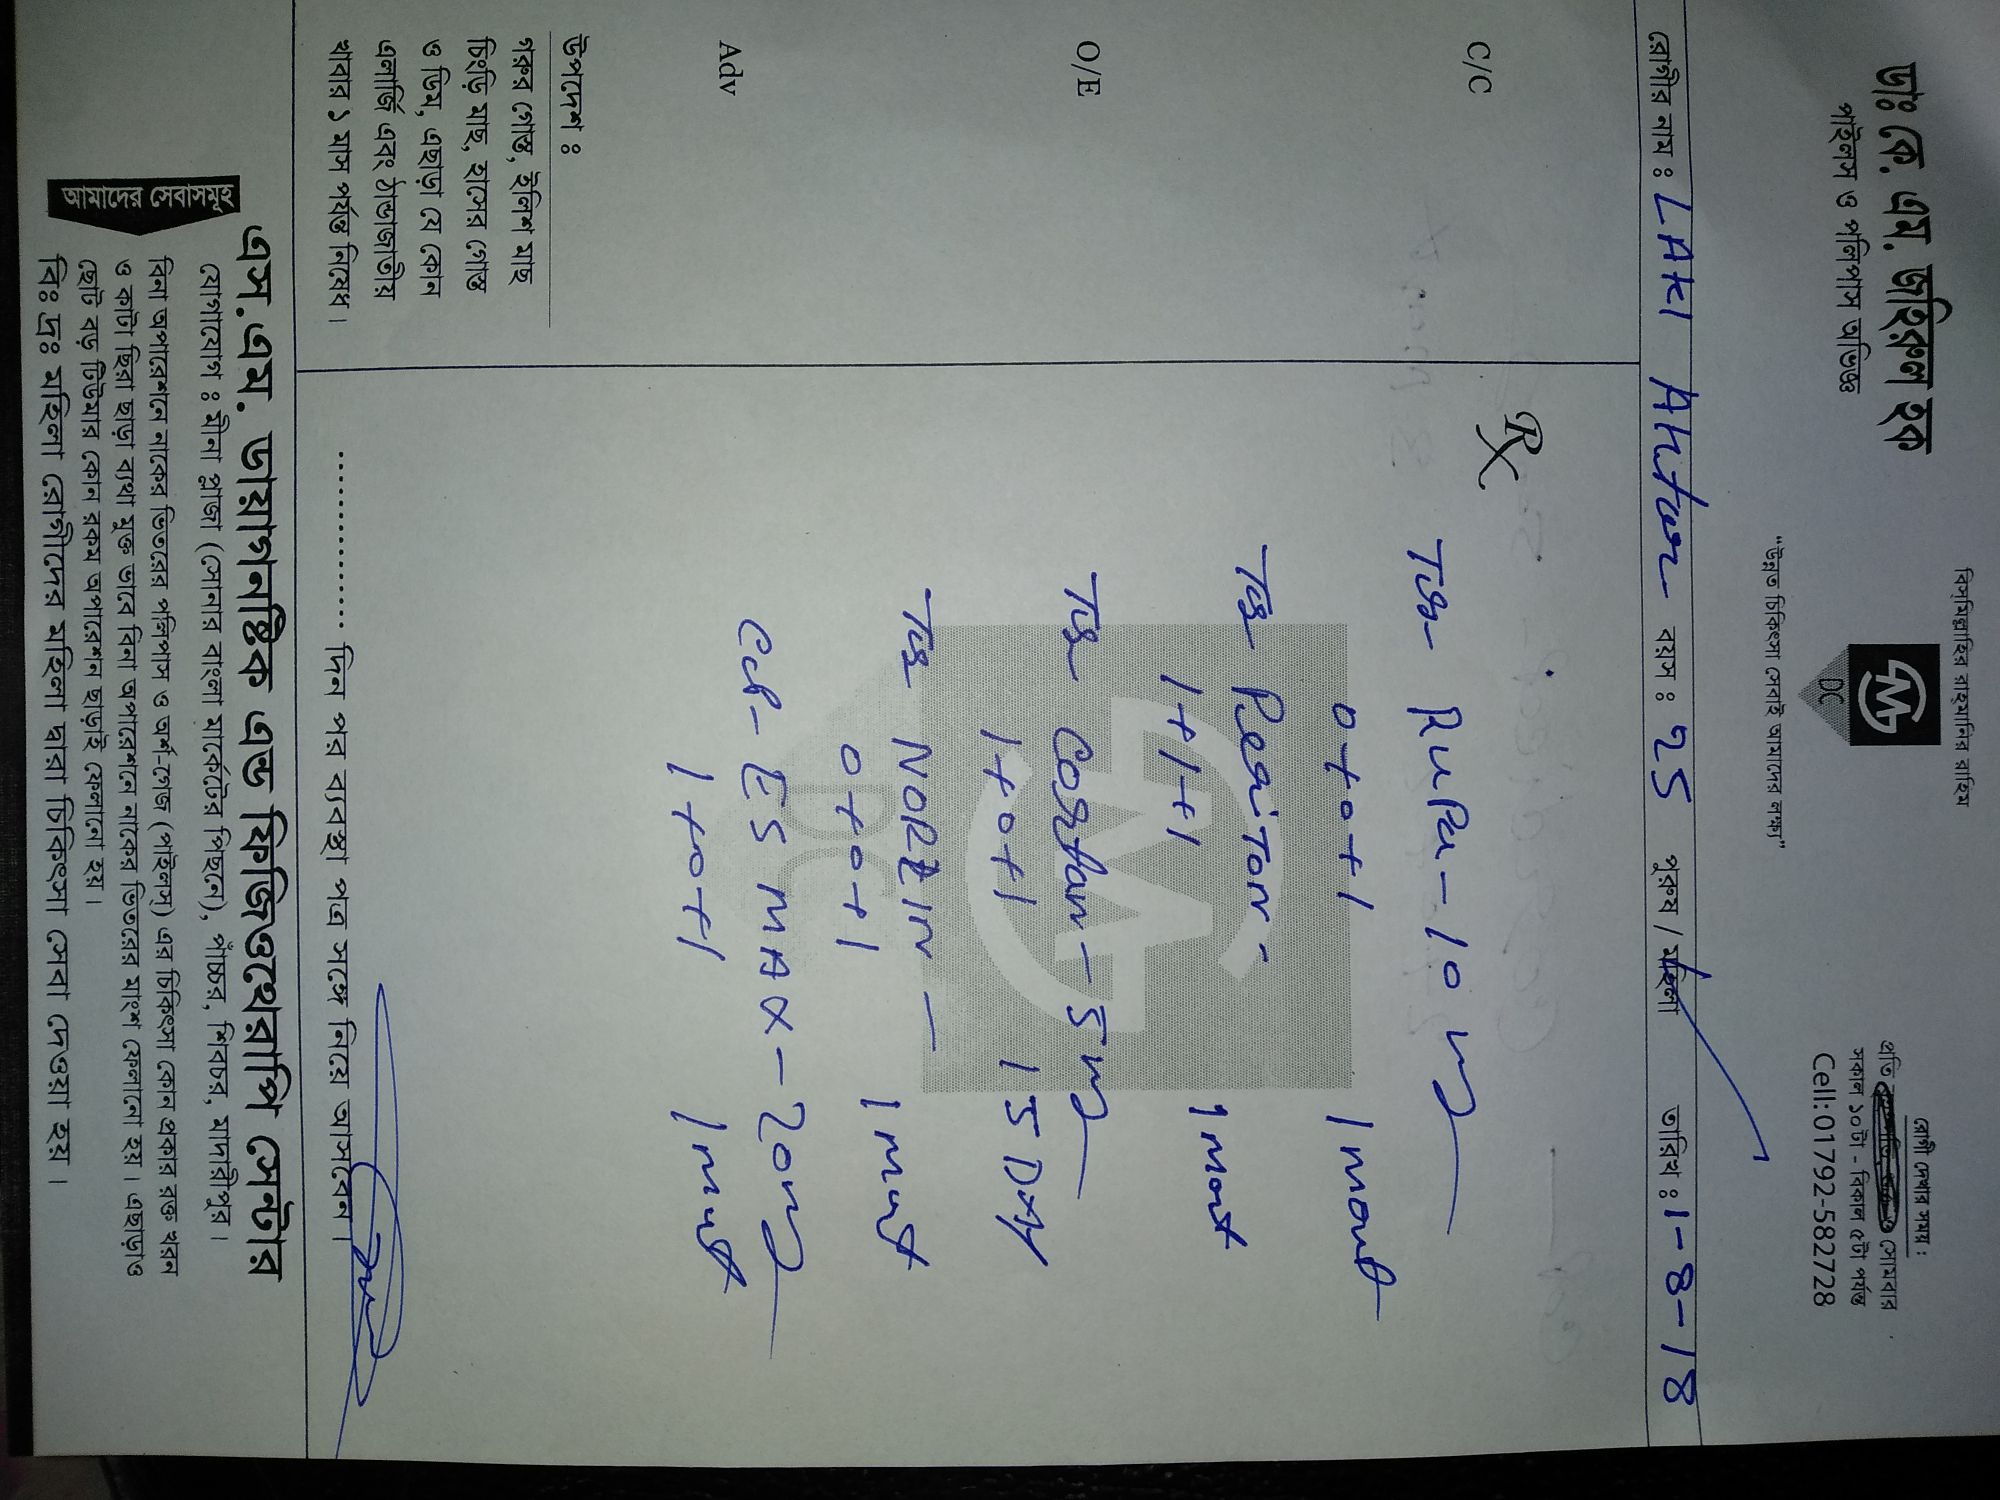 বিস্‌মিল্লাহির রাহ্‌মানির রাহিম
ডাঃ কে. এম. জহিরুল হক
পাইলস ও পলিপাস অভিজ্ঞ
DC
"উন্নত চিকিৎসা সেবাই আমাদের লক্ষ্য"
রোগী দেখার সময় :
প্রতি সোমবার
সকাল ১০টা - বিকাল ৫টা পর্যন্ত
Cell:01792-582728
রোগীর নাম : LAKI Akhter বয়স : 25 পুরুষ / মহিলা তারিখ : 1-8-18
C/C
O/E
Adv
উপদেশ :
গরুর গোস্ত, ইলিশ মাছ
চিংড়ি মাছ, হাসের গোস্ত
ও ডিম, এছাড়া যে কোন
এলার্জি এবং ঠান্ডাজাতীয়
খাবার ১ মাস পর্যন্ত নিষেধ।
Rx
Tab- RuPa - 10 mg
0+0+1 1 mont
Tab- PeriTon -
1+1+1 1 mont
Tab- - 5 mg
1+0+1 15 DAy
Tab- -
0+0+1 1 mont
Cap- ESMAX - 20 mg
1+0+1 1 mont
............... দিন পর ব্যবস্থা পত্র সঙ্গে নিয়ে আসবেন।
এস.এম. ডায়াগনষ্টিক এন্ড ফিজিওথেরাপি সেন্টার
যোগাযোগ : মীনা প্লাজা (সোনার বাংলা মার্কেটের পিছনে), পাঁচ্চর, শিবচর, মাদারীপুর।
আমাদের সেবাসমূহ
বিনা অপারেশনে নাকের ভিতরের পলিপাস ও অর্শ-গেজ (পাইলস্) এর চিকিৎসা কোন প্রকার রক্ত খরন
ও কাটা ছিরা ছাড়া ব্যথা মুক্ত ভাবে বিনা অপারেশনে নাকের ভিতরের মাংশ ফেলানো হয়। এছাড়াও
ছোট বড় টিউমার কোন রকম অপারেশন ছাড়াই ফেলানো হয়।
বিঃ দ্রঃ মহিলা রোগীদের মহিলা দ্বারা চিকিৎসা সেবা দেওয়া হয়।